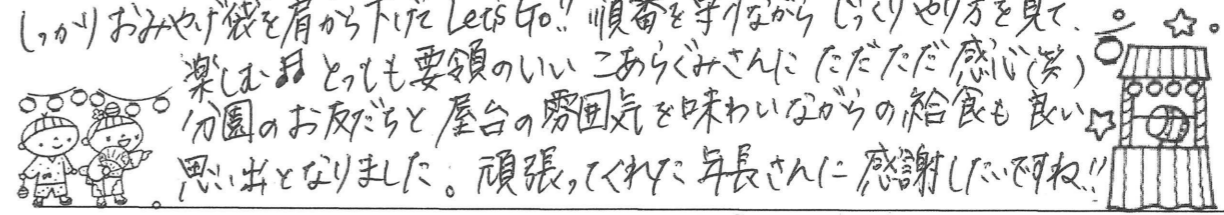 しっかりおみやげ袋を肩から下げて Let's Go!! 順番を守りながら じっくりやり方を見て、
楽しむ♫ とっても要領のいい こあらぐみさんに ただただ感心(笑)
分園のお友だちと屋台の雰囲気を味わいながらの給食も良い
思い出となりました。頑張ってくれた年長さんに感謝したいですね!!